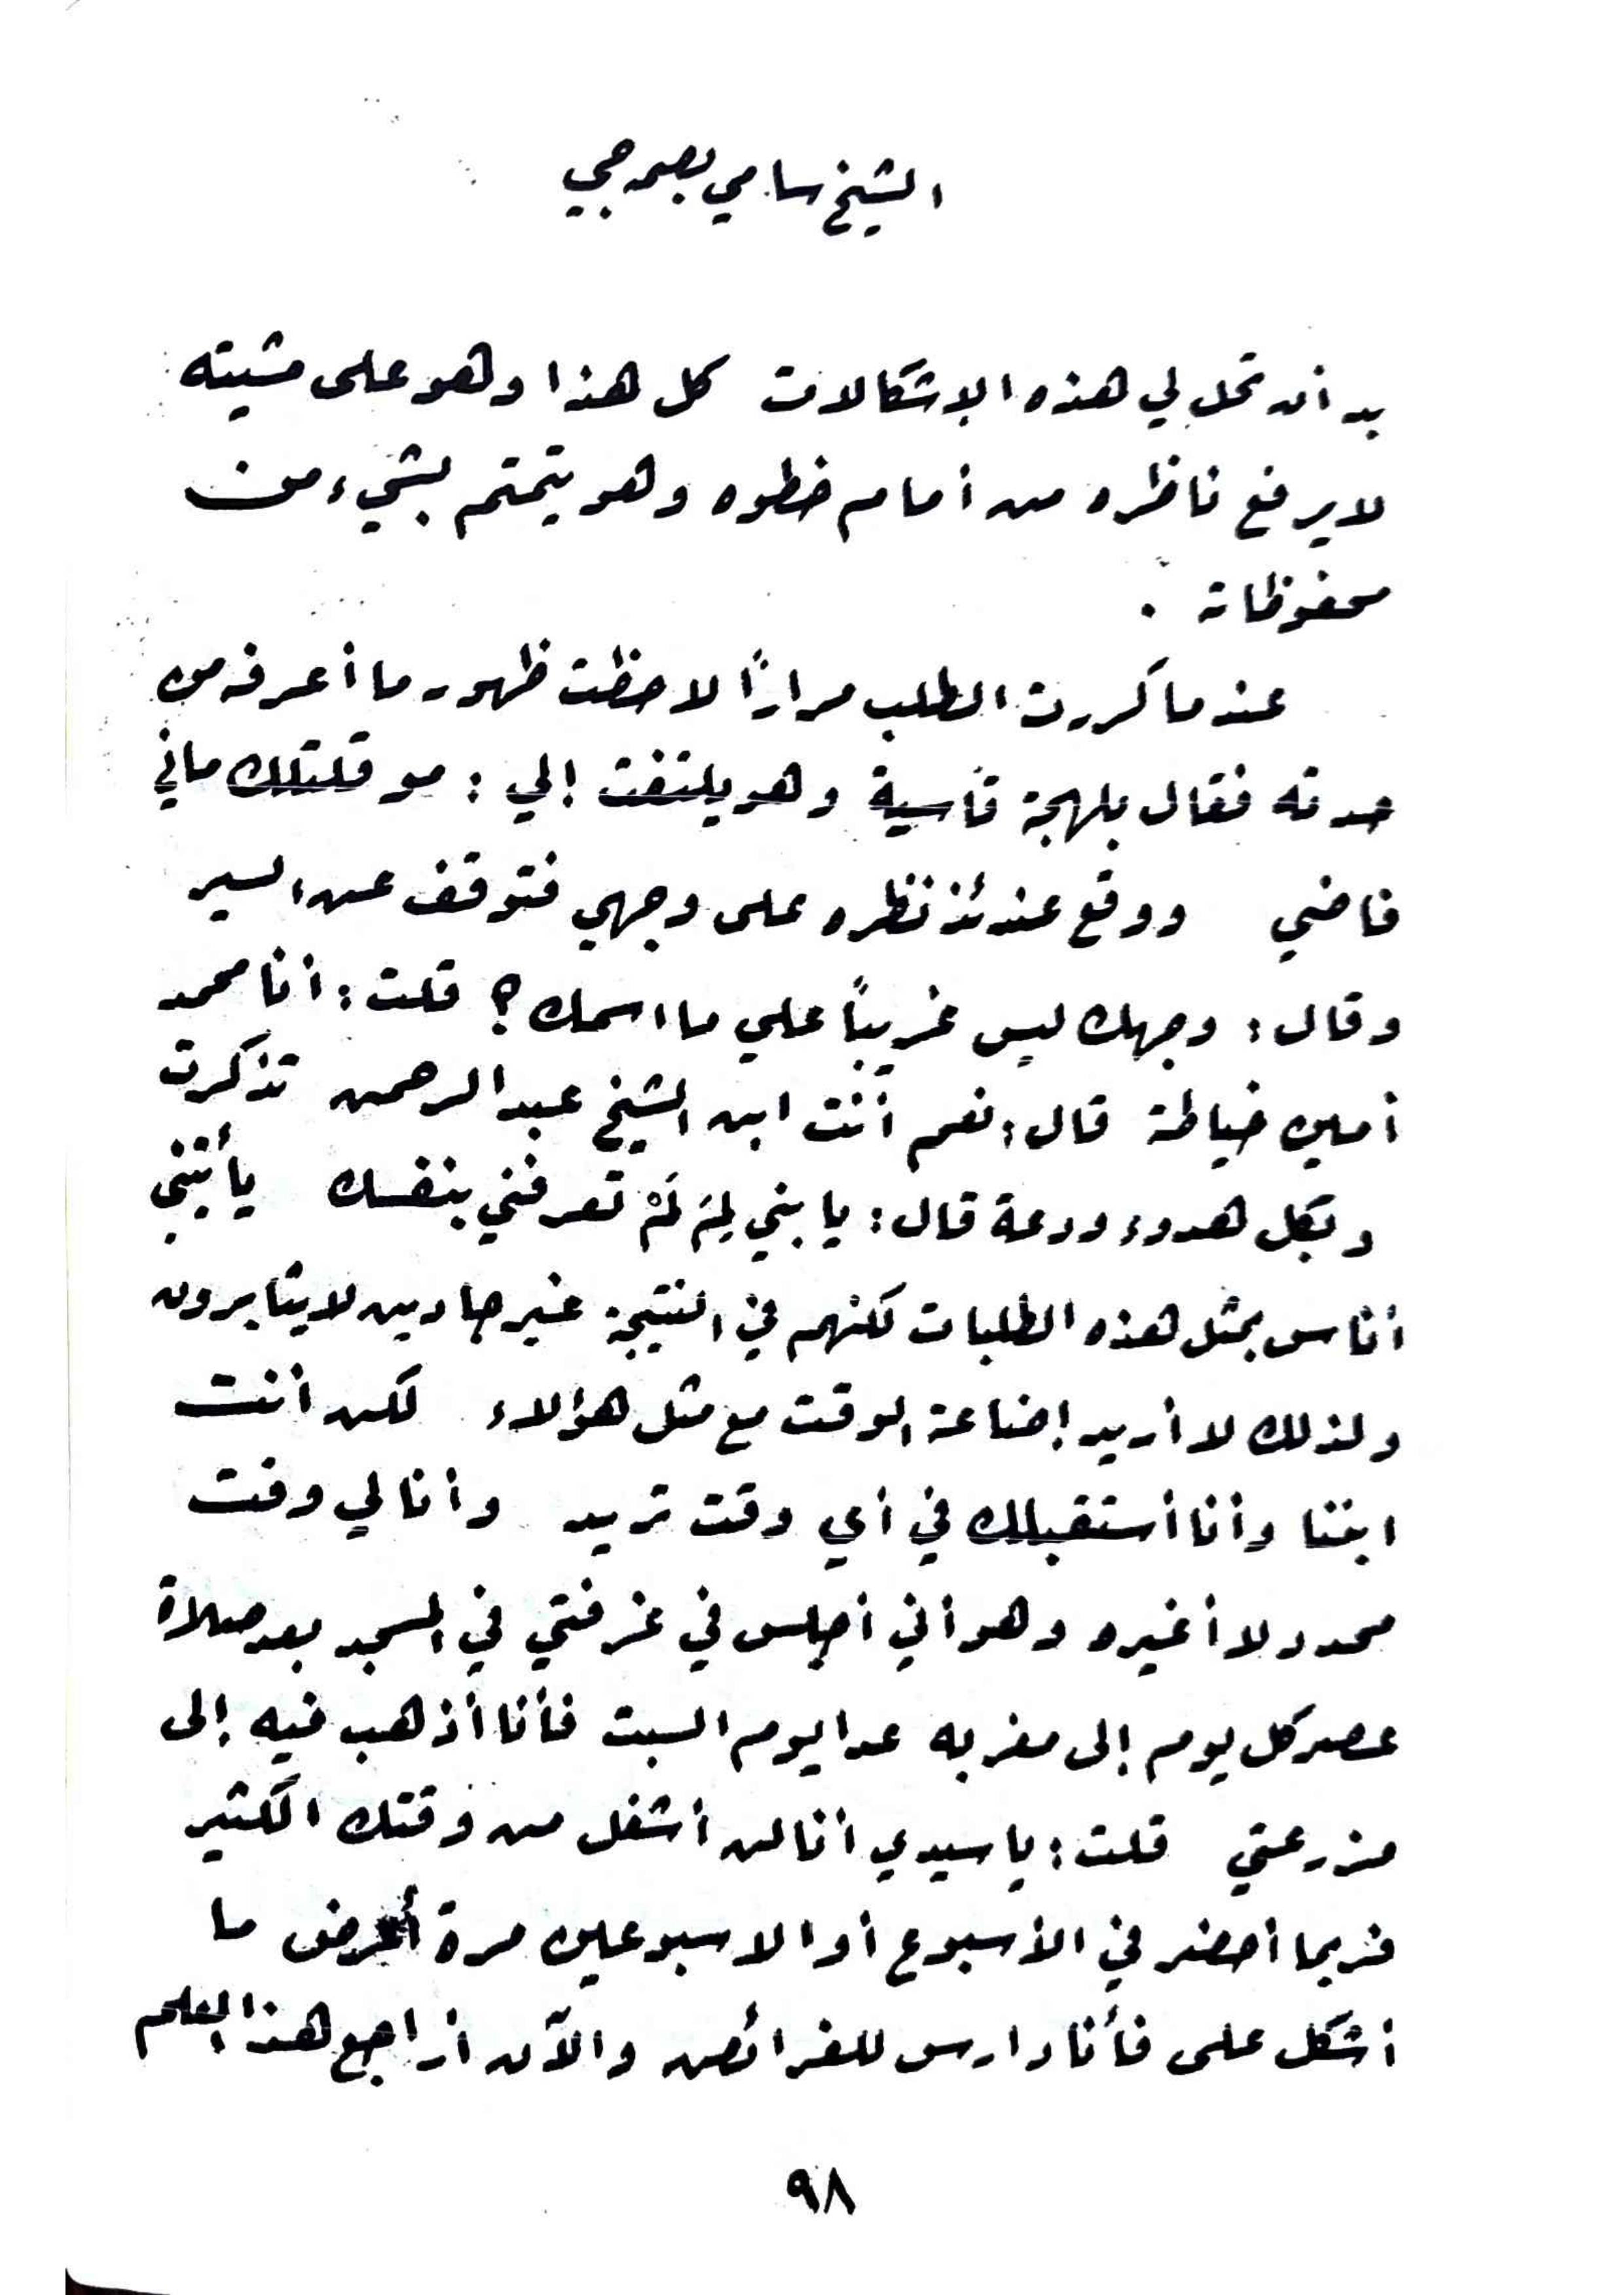 الشيخ سامي بصمه جي
بد أن تحل لي هذه الإشكالات كل هذا وهو على مشيته
لا يرفع ناظره من أمام خطوه وهو يتمتم بشيء من
محفوظاته .
عندما كررت الطلب مراراً لاحظت ظهور ما أعرفه من
حدته فقال بلهجة قاسية وهو يلتفت إلي : مو قلتلك ماني
فاضي ووقع عندئذ نظره على وجهي فتوقف عن السير
وقال : وجهك ليس غريباً علي ما اسمك ؟ قلت : أنا محمد
أمين خياطة قال : نعم أنت ابن الشيخ عبد الرحمن تذكرت
وبكل هدوء ودعة قال : يا بني لِمَ لَمْ تعرفني بنفسك يأتيني
أناس بمثل هذه الطلبات لكنهم في النتيجة غير جادين لا يثابرون
ولذلك لا أريد إضاعة الوقت مع مثل هؤلاء لكن أنت
ابننا وأنا أستقبلك في أي وقت تريد وأنا لي وقت
محدد لا أغيره وهو أني أجلس في غرفتي في المسجد بعد صلاة
عصر كل يوم إلى مغربه عدا يوم السبت فأنا أذهب فيه إلى
مزرعتي قلت : يا سيدي أنا لن أشغل من وقتك الكثير
فربما أحضر في الأسبوع أو الاسبوعين مرة أعرض ما
أشكل على فأنا دارس للفرائض والآن أراجع هذا العلم
٩٨